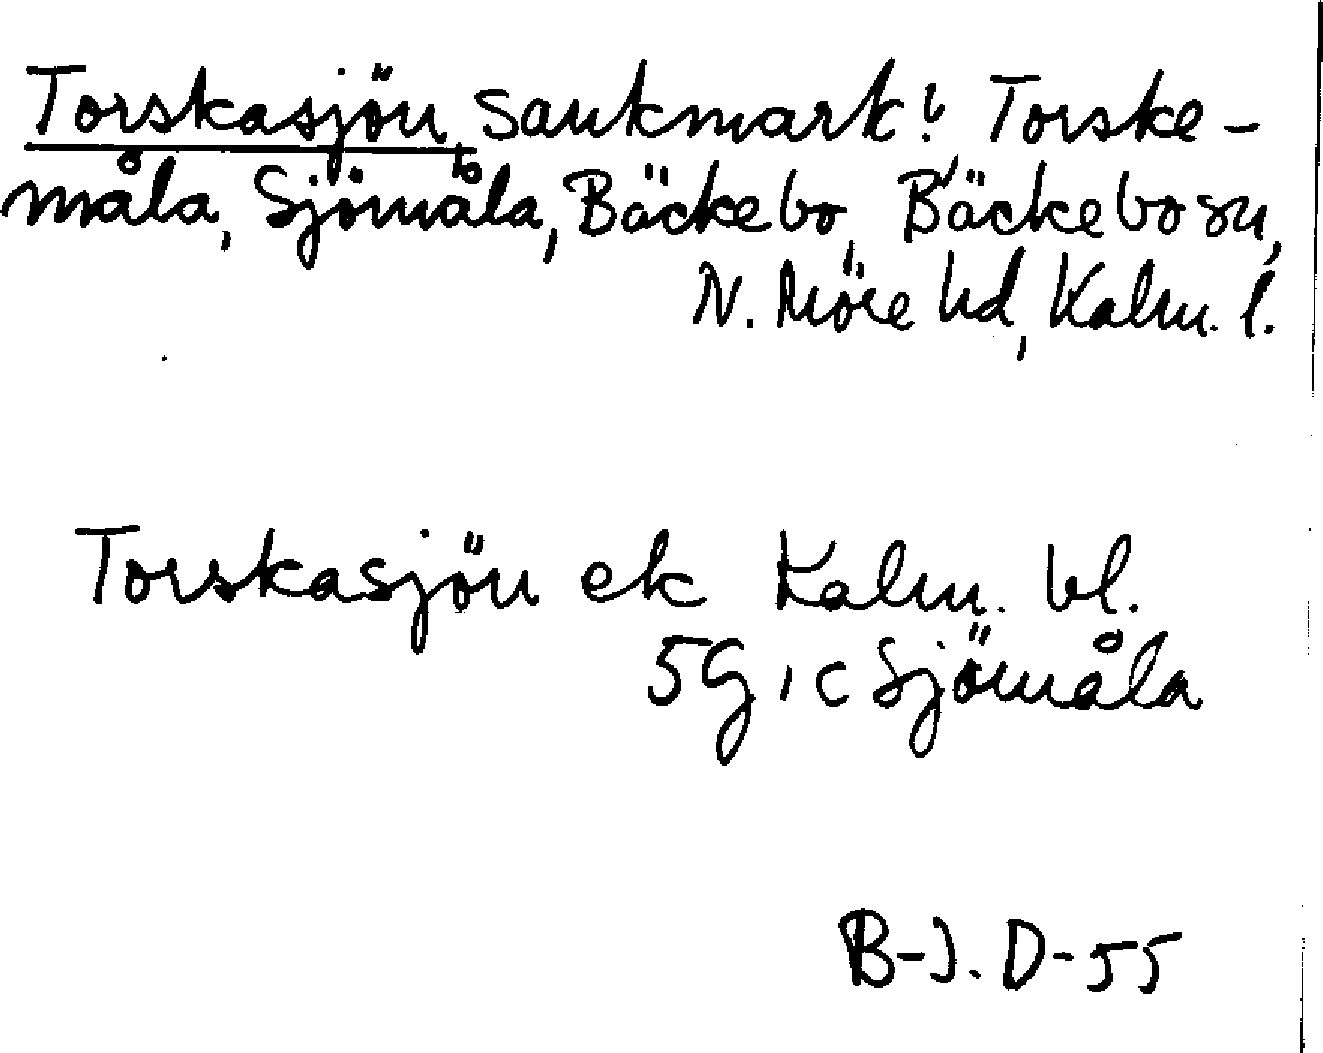 Torskasjön, sankmark? Torske-
måla, Sjömåla, Bäckebo, Bäckebo sn,
N. Möre hd, Kalm. l.
Torskasjön ek Kalm. bl.
5G 1c Sjömåla
B-J. D-55